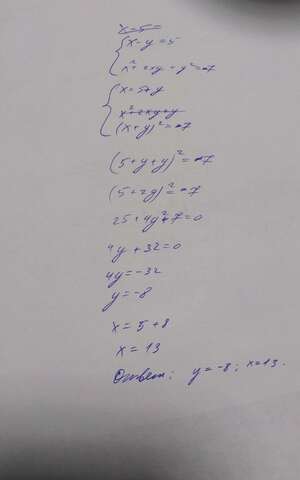 x - y = 5
x² + 2xy + y² = -7
x = 5 + y
(x + y)² = -7
(5 + y + y)² = -7
(5 + 2y)² = -7
25 + 4y² + 7 = 0
4y + 32 = 0
4y = -32
y = -8
x = 5 + 8
x = 13
Ответ: y = -8; x = 13.